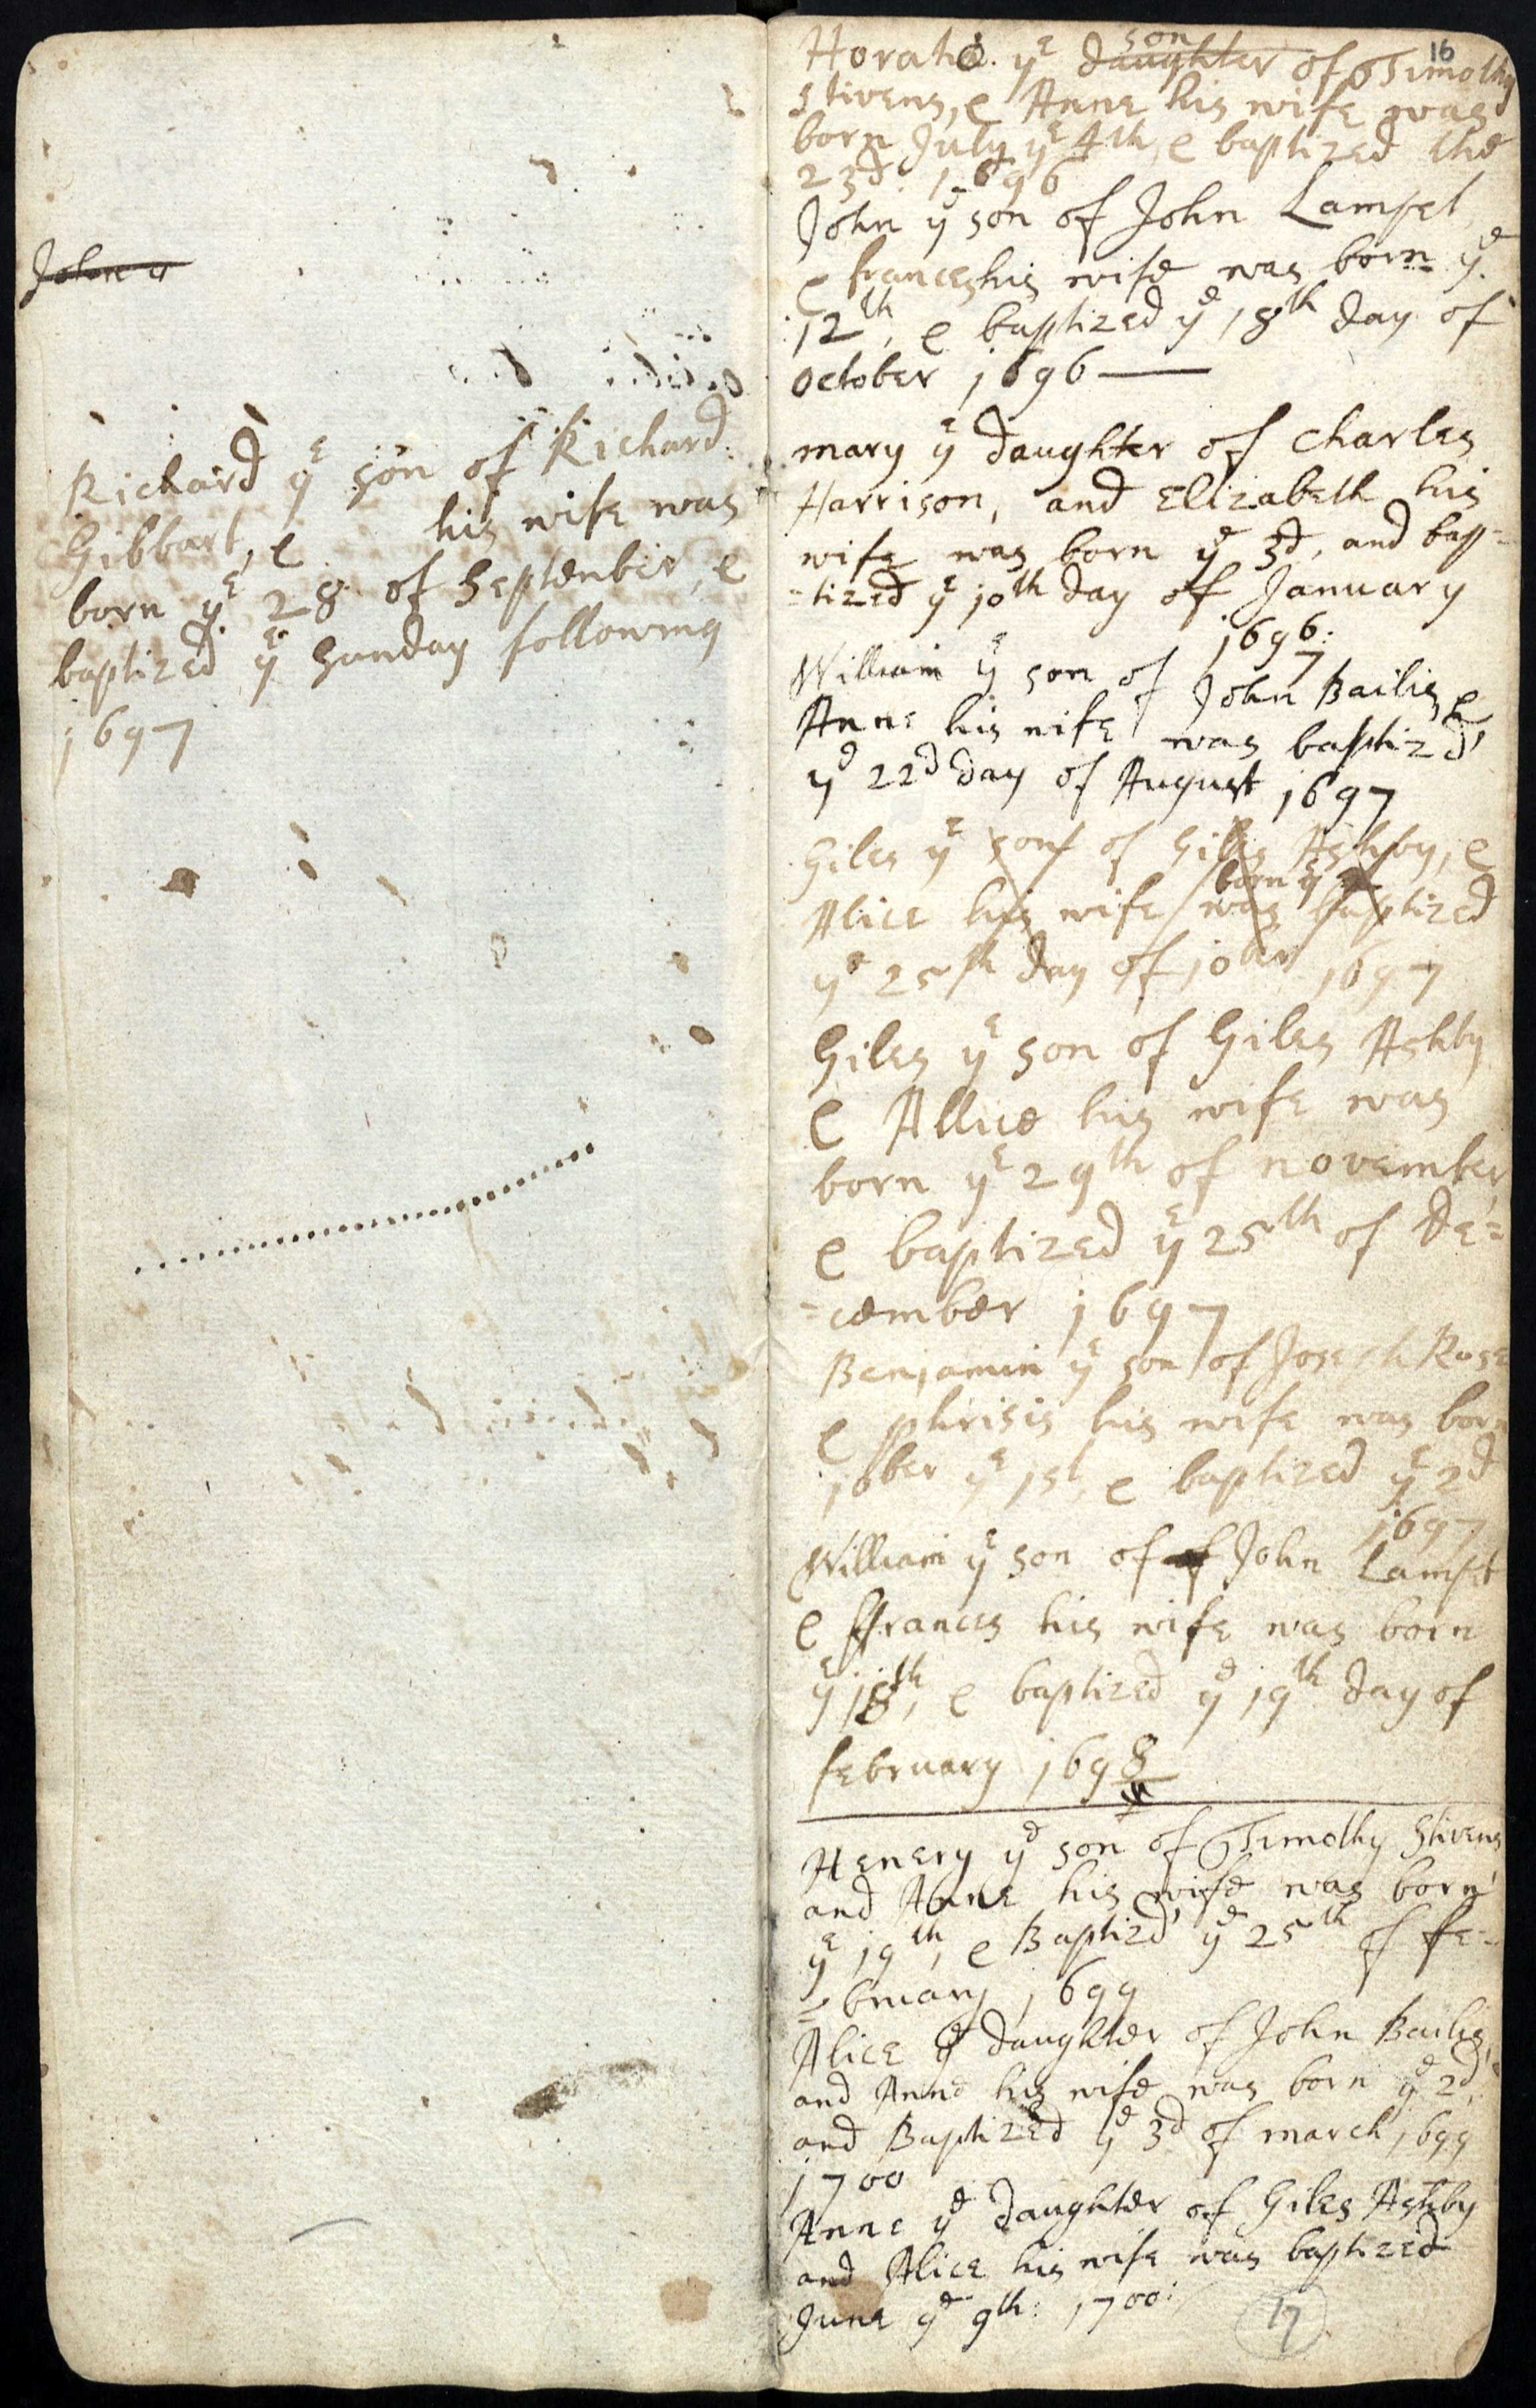 John y
Richard ye son of Richard
Gibbart, e his wife was
born ye 28 of September, e
baptized ye Sunday following
1697
16
son
Horatio. ye daughter of Timothy
Stivens, e Anne his wife was
born July ye 4th, e baptized the
23d. 1696
John ye son of John Lampet
e frances his wife was born ye
12th, e baptized ye 18th day of
October 1696
mary ye daughter of Charles
Harrison, and Elizabeth his
wife was born ye 3d, and bap=
=tized ye 10th day of January
1696:
7
William ye son of John Bailis e
Anne his wife was baptiz'd
ye 22d day of August 1697
Giles ye son of Giles Ashby, e
born ye
Alice his wife was baptized
ye 25th day of 10ber 1697
Giles ye son of Giles Ashby
e Allice his wife was
born ye 29th of november,
e baptized ye 25th of De=
=cember 1697
Benjamin ye son of Joseph Rose
e phrisis his wife was born
10ber ye 1st, e baptized ye 2d
1697
William ye son of of John Lampet
e ffrances his wife was born
ye 18th, e baptized ye 19th day of
february 1698
Henery ye son of Timothy Stivens
and Anne his wife was born
ye 19th, e Baptiz'd ye 25th of fe=
=bruary 1699
Alice ye daughter of John Bailis,
and Anne his wife was born ye 2d,
and Baptized ye 3d of march 1699
1700
Anne ye daughter of Giles Ashby
and Alice his wife was baptized
June ye 9th: 1700:
17